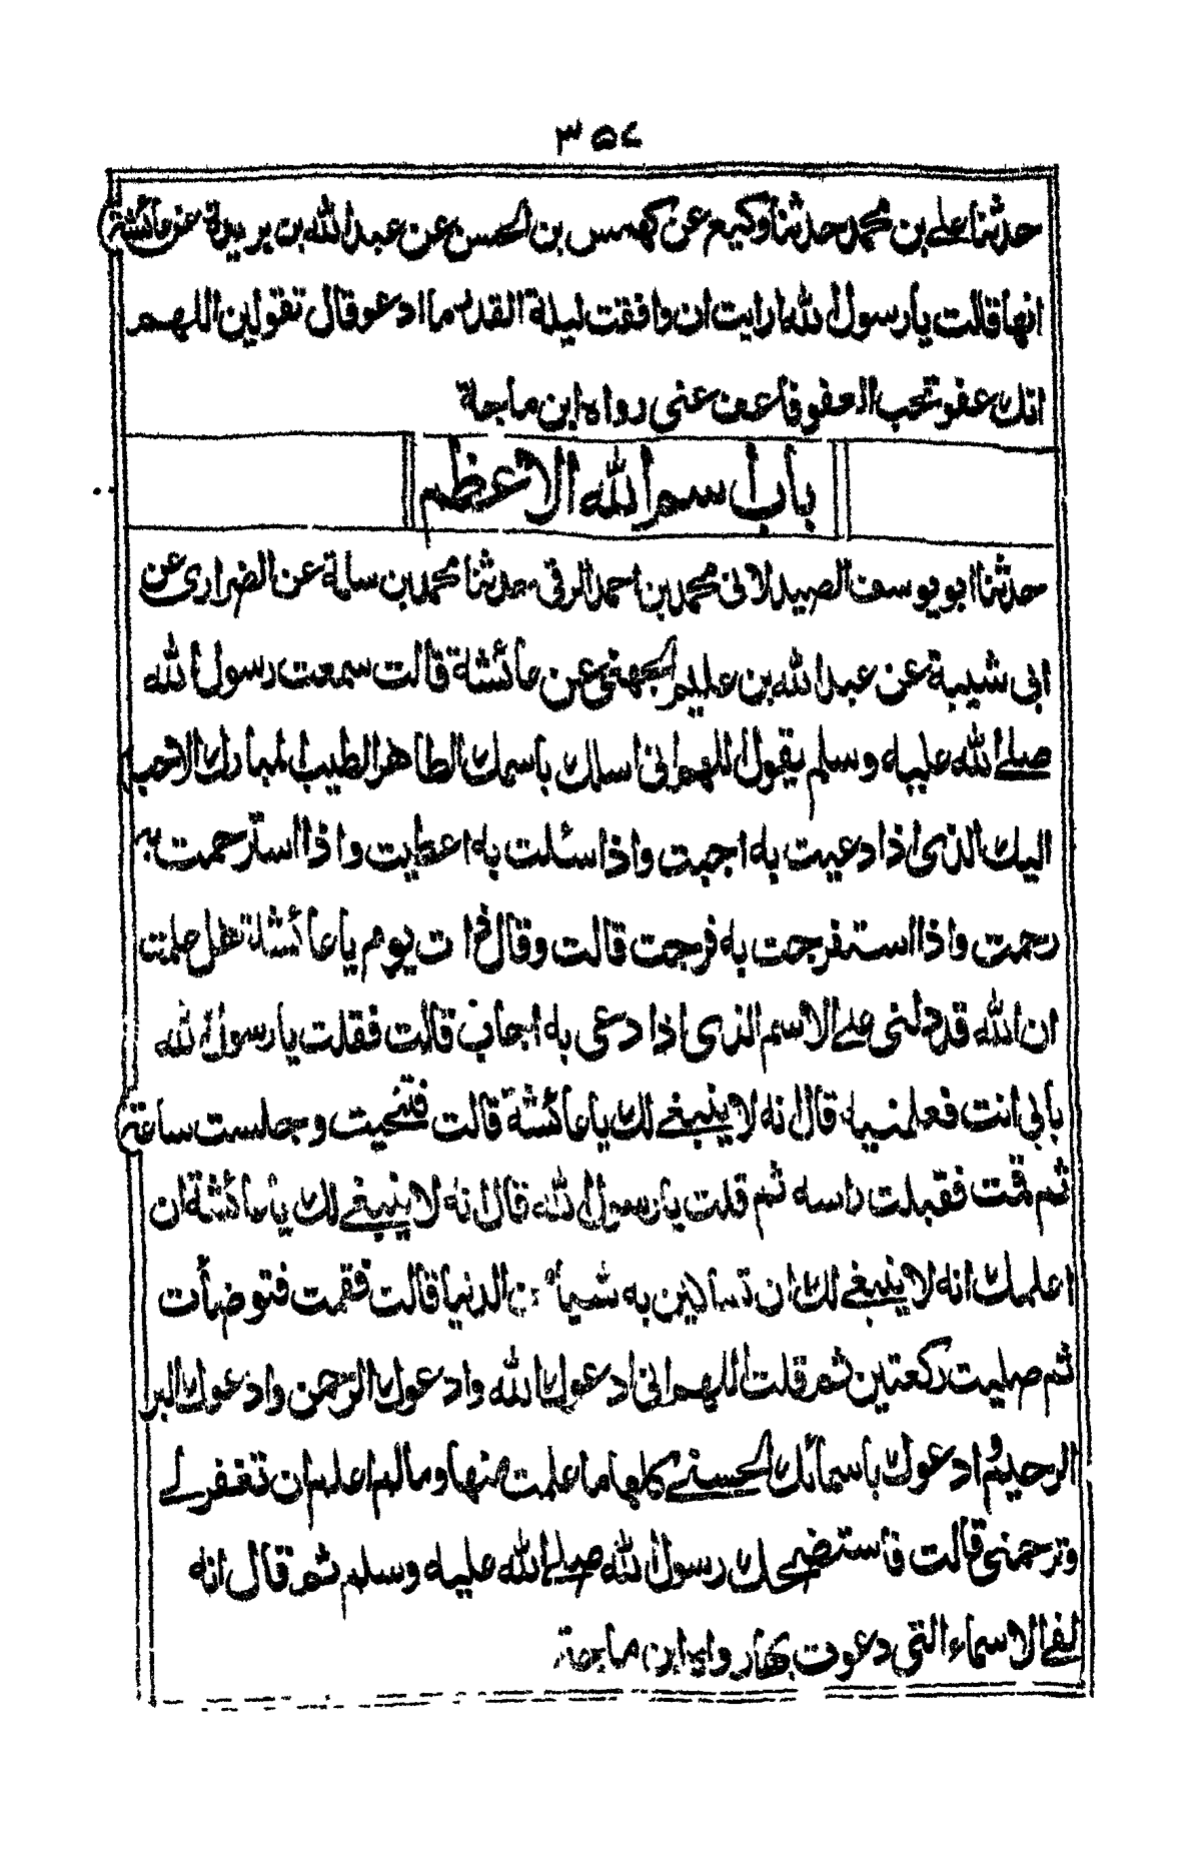 ۳۵۴
حدثنا علے بن محمد حدثنا وكيع عن كهمس بن الحسن عن عبد الله بن بريدة عن عائشة
انها قالت يا رسول الله ارايت ان وافقت ليلة القدر ما ادعو قال تقولين اللهم
انك عفو تحب العفو فاعف عنى رواه ابن ماجة
باب اسم الله الاعظم
حدثنا ابو يوسف الصيدلانى محمد بن احمد الرقى حدثنا محمد بن سلمة عن الضرارى عن
ابى شيبة عن عبد الله بن عليم الجهنى عن عائشة قالت سمعت رسول الله
صلے الله عليه وسلم يقول اللهم انى اسئلك باسمك الطاهر الطيب المبارك الاحب
اليك الذى اذا دعيت به اجبت واذا سئلت به اعطيت واذا استرحمت به
رحمت واذا استفرجت به فرجت قالت وقال ذات يوم يا عائشة هل علمت
ان الله قد دلنى علے الاسم الذى اذا دعى به اجاب قالت فقلت يا رسول الله
بابى انت فعلمنيه قال انه لا ينبغے لك يا عائشة قالت فتنحيت وجلست ساعة
ثم قمت فقبلت راسه ثم قلت يا رسول الله قال انه لا ينبغے لك يا عائشة ان
اعلمك انه لا ينبغے لك ان تسالين به شيأ من الدنيا قالت فقمت فتوضأت
ثم صليت ركعتين ثم قلت اللهم انى ادعوك الله وادعوك الرحمن وادعوك البر
الرحيم وادعوك باسمائك الحسنے كلها ما علمت منها وما لم اعلم ان تغفر لے
وترحمنى قالت فاستضحك رسول الله صلے الله عليه وسلم ثم قال انه
لفے الاسماء التى دعوت بها رواه ابن ماجة